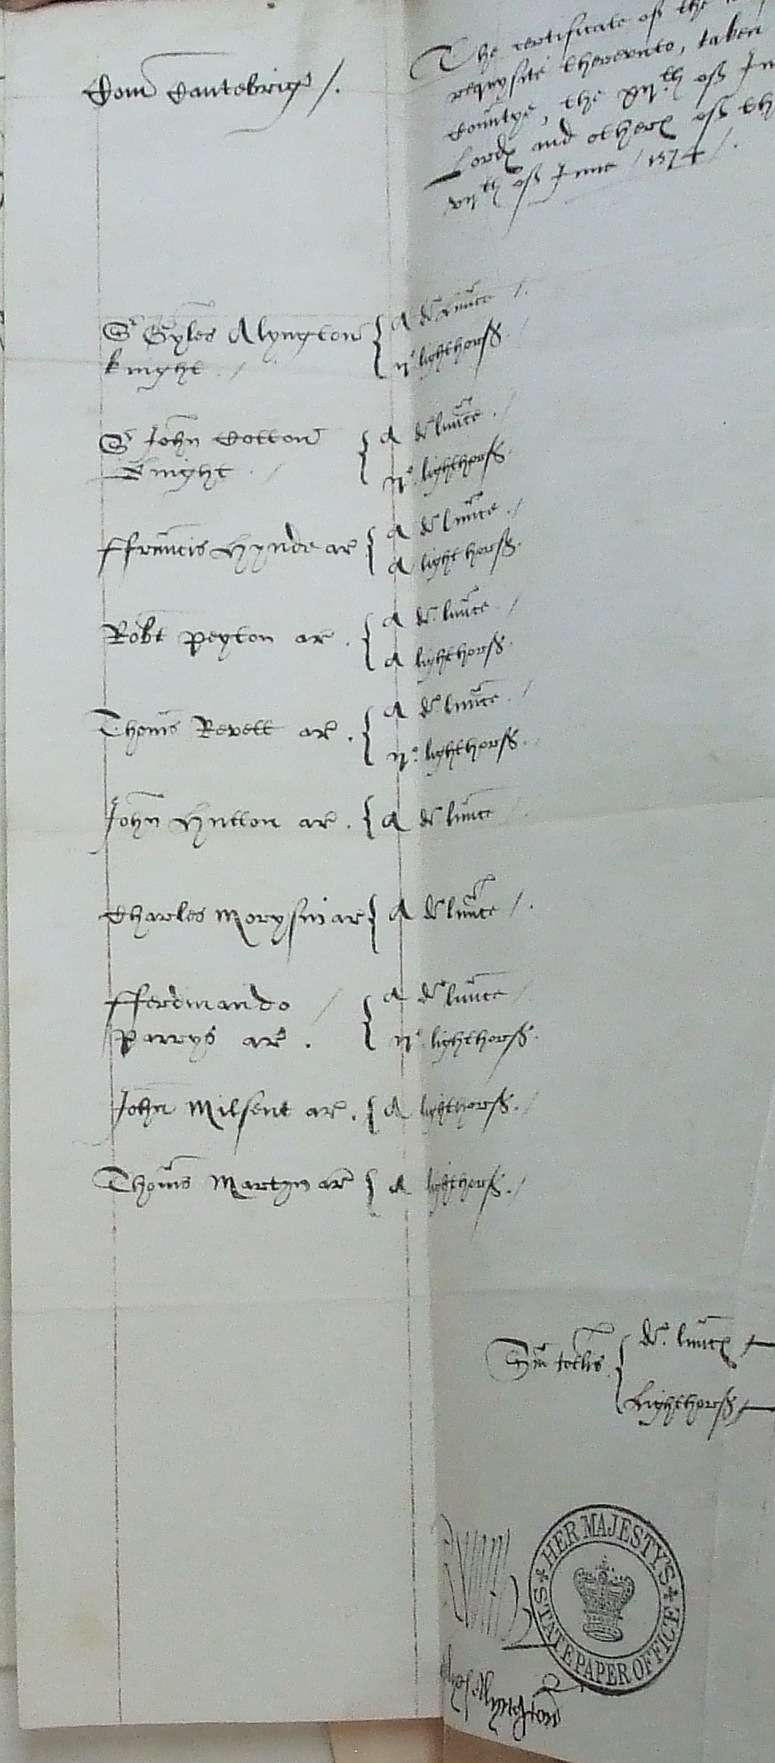 Com Cantebrigs /.
The certificate of the
requysite therevnto, taken
Countye, the xijth of
Lordes and others of
vijth of June / 1574 /.
Sr Gyles Alyngton { A de launce /.
knight . / ij lighthorss .
Sr John Cotton { A de launce . /
Knight . / ij lighthorss .
ffrancis Hynde ar { A de launce . /
A light horss .
Robt Peyton ar . { A de launce . /
A lighthorss .
Thoms Revell ar . { A de launce . /
ij lighthorss .
John Hutton ar . { A de launce /
Charles Morysin ar { A de launce / .
fferdinando / { A de launce /
Parrys ar . ij lighthorss .
John Milsent ar . { A lighthorss . /
Thoms Martyn ar { A lighthorss . /
Sm totlis . { de . launces
Lighthorss
HER MAJESTY'S
STATE PAPER OFFICE
Alyngton